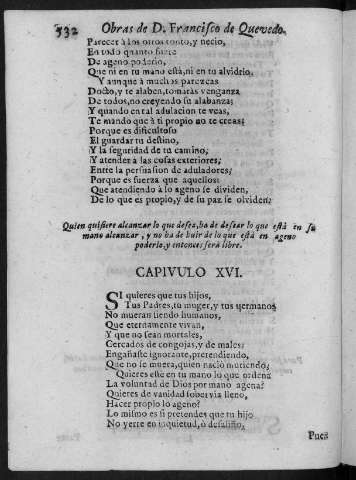 532 Obras de D. Francisco de Quevedo.
Parecer à los otros tonto, y necio,
En todo quanto fuere
De ageno poderio,
Que ni en tu mano està, ni en tu alvidrio,
Y aunque à muchas parezcas
Docto, y te alaben, tomaràs venganza
De todos, no creyendo su alabanza;
Y quando en tal adulacion te veas,
Te mando que à ti propio no te creas;
Porque es dificultoso
El guardar tu destino,
Y la seguridad de tu camino,
Y atender à las cosas exteriores;
Entre la persuasion de aduladores;
Porque es fuerza que aquellos
Que atendiendo à lo ageno se dividen,
De lo que es propio, y de su paz se olviden;
Quien quisiere alcanzar lo que desea, ha de desear lo que està en su
mano alcanzar, y no ha de huir de lo que està en ageno
poderio, y entonces serà libre.
CAPIVULO XVI.
SI quieres que tus hijos,
Tus Padres, tu muger, y tus hermanos
No mueran siendo humanos,
Que eternamente vivan,
Y que no sean mortales,
Cercados de congojas, y de males;
Engañaste ignorante, pretendiendo,
Que no se muera, quien naciò muriendo;
Quieres estè en tu mano lo que ordena
La voluntad de Dios por mano agena?
Quieres de vanidad sobervia lleno,
Hacer propio lo ageno?
Lo mismo es si pretendes que tu hijo
No yerre en inquietud, ù desaliño,
Pues